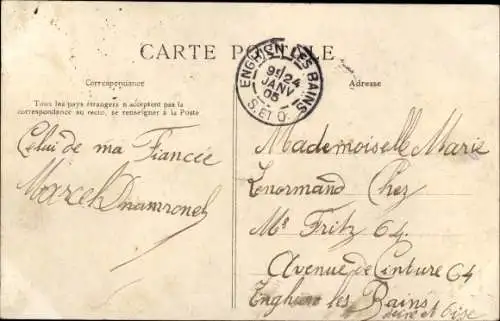 CARTE POSTALE
ENGHIEN LES BAINS
9H 24
JANV
05
S. ET O.
Correspondance
Tous les pays étrangers n'acceptent pas la
correspondance au recto, se renseigner à la Poste
Celui de ma Fiancée
Marcel
Adresse
Mademoiselle Marie
Lenormand Chez
Mr Fritz 64
Avenue de Ceinture 64
Enghien les Bains
Seine et Oise